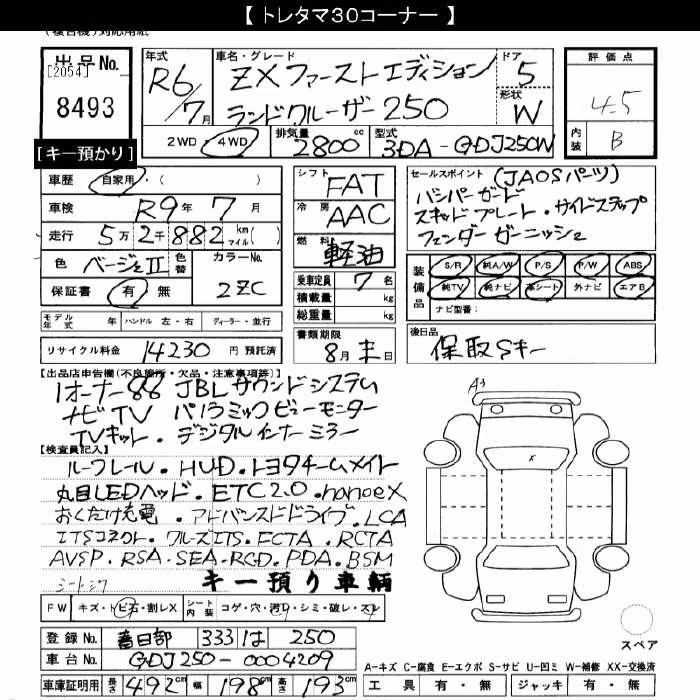 【 トレタマ30コーナー 】
出品No.
[2054]
8493
[キー預かり]
年式
R6/7月
車名・グレード
ZX ファーストエディション
ランドクルーザー 250
ドア
5
形状
W
評価点
4.5
内装
B
2WD・4WD
排気量
2800cc
型式
3DA-GDJ250W
車歴
自家用・( )
車検
R9年7月
走行
5万2千882km マイル( )
色
ベージュⅡ
色替
カラーNo.
2ZC
保証書
有 無
シフト
FAT
冷房
AAC
燃料
軽油
乗車定員
7名
積載量
kg
総重量
kg
セールスポイント
(JAOSパーツ)
バンパーガード
スキッドプレート・サイドステップ
フェンダーガーニッシュ
装備品
S/R 純A/W P/S P/W ABS
純TV 純ナビ 革シート 外ナビ エアB
ナビ型番:
モデル年式 年
ハンドル 左・右
ディーラー・並行
書類期限
8月末日
後日品
保取Sキー
リサイクル料金
14230円 預託済
【出品店申告欄(不良箇所・欠品・注意事項等)】
1オーナー JBLサウンドシステム
ナビTV パノラミックビューモニター
TVキット・デジタルインナーミラー
【検査員記入】
ルーフレール・HUD・トヨタチームメイト
丸目LEDヘッド・ETC2.0・nanoeX
おくだけ充電・アドバンスドドライブ・LCA
ITSコネクト・クルーズITS・FCTA・RCTA
AVSP・RSA・SEA・RCD・PDA・BSM
キー預り車輌
A3
FW
キズ・トビ石・割レX
シート内装
コゲ・穴・汚レ・シミ・破レ・スレ
登録No.
春日部 333 は 250
車台No.
GDJ250-0004209
車庫証明用
長さ 492cm 幅 198cm 高さ 193cm
スペア
A-キズ C-腐食 E-エクボ S-サビ U-凹ミ W-補修 XX-交換済
工具 有・無 ジャッキ 有・無